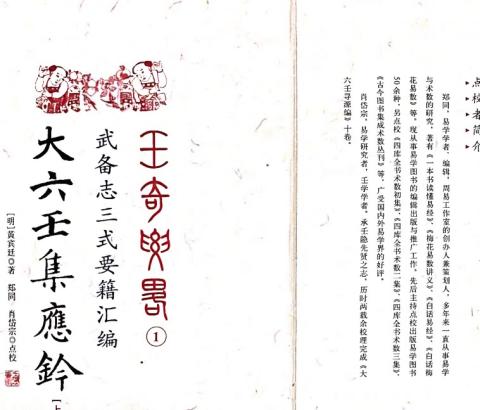 点校者简介
郑同，易学学者，编辑，周易工作室的创办人兼策划人，多年来一直从事易学
与术数的研究，著有《一本书读懂易经》、《梅花易数讲义》、《白话易经》、《白话梅
花易数》等。现从事易学图书的编辑出版与推广工作，先后主持点校出版易学图书
50余种，另点校《四库全书术数初集》、《四库全书术数二集》、《四库全书术数三集》、
《古今图书集成术数丛刊》等，广受国内外易学界的好评。
肖岱宗，易学研究者，壬学学者。承壬隐先贤之志，历时两载余校理完成《大
六壬寻源编》十卷。
壬奇要略①
武备志三式要籍汇编
大六壬集應鈐[上
[明]黄宾廷◎著 郑同 肖岱宗◎点校